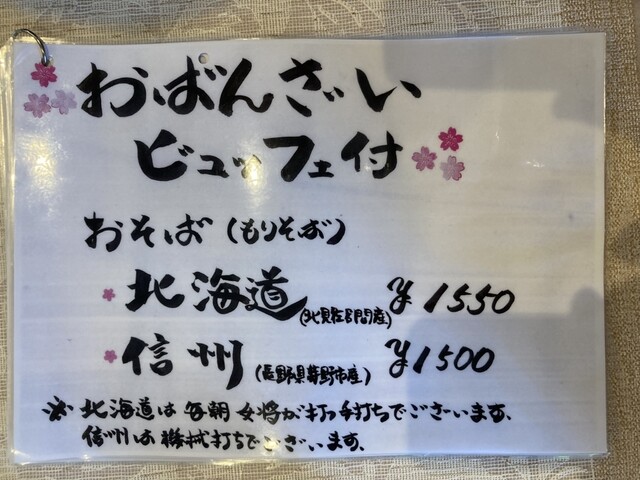 おばんざい
ビュッフェ付
おそば (もりそば)
北海道 (北見佐呂間産) ¥1550
信州 (長野県茅野市産) ¥1500
※ 北海道は毎朝女将が打つ手打ちでございます、
信州は機械打ちでございます、